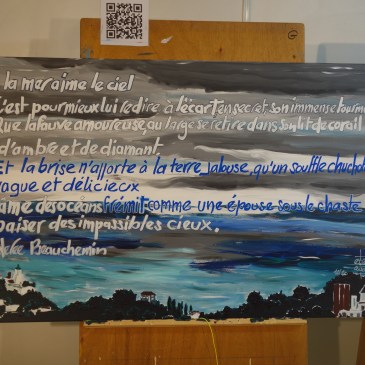 la mer aime le ciel
c'est pour mieux lui redire à l'écart en secret son immense tourme
Que la fauve amoureuse, au large se retire dans son lit de corail
d'ambre et de diamant
Et la brise n'apporte à la terre jalouse, qu'un souffle chucho
vague et délicieux
âme des océans frémit comme une épouse sous le chaste
baiser des impassibles cieux.
Beauchemin